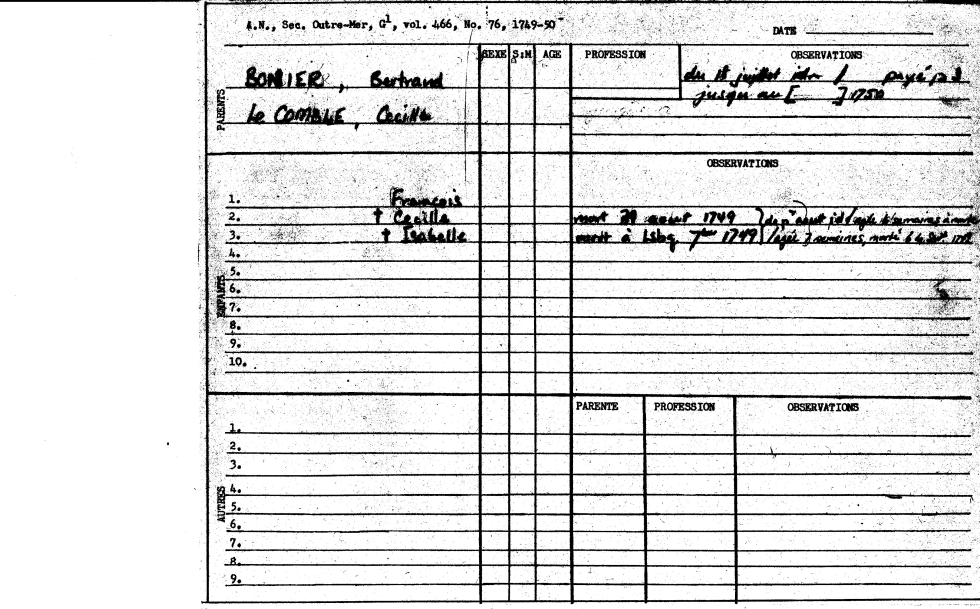 A.N., Sec. Outre-Mer, G¹, vol. 466, No. 76, 1749-50
DATE
SEXE S:M AGE PROFESSION OBSERVATIONS
PARENTS
BONNIER, Bertrand
du 18 juillet idm / payé p 3
Le COMBLE, Cecille
jusqu au [ ] 1750
OBSERVATIONS
ENFANTS
1. François
2. † Cecille mort 29 aout 1749
3. † Isabelle mortt à Lsbg 7bre 1749 / agée 7 semaines, morte
4.
5.
6.
7.
8.
9.
10.
PARENTE PROFESSION OBSERVATIONS
AUTRES
1.
2.
3.
4.
5.
6.
7.
8.
9.